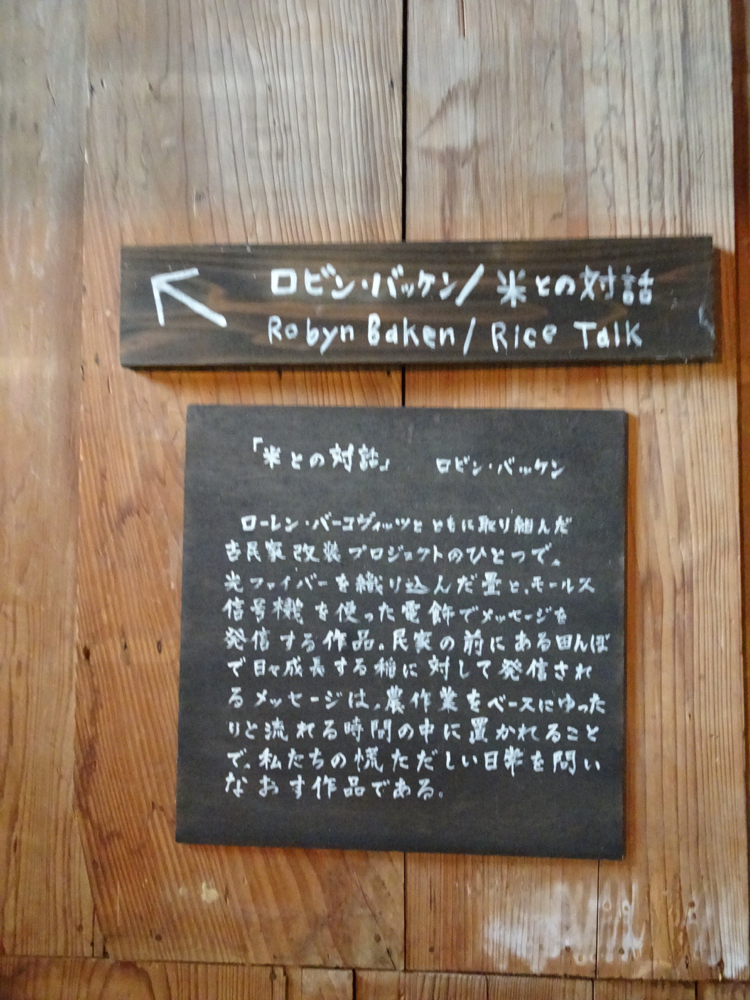 ロビン・バッケン/米との対話
Robyn Baken/Rice Talk
「米との対話」 ロビン・バッケン
ローレン・バーコヴィッツとともに取り組んだ
古民家改装プロジェクトのひとつで、
光ファイバーを織り込んだ畳と、モールス
信号機を使った電飾でメッセージを
発信する作品。民家の前にある田んぼ
で日々成長する稲に対して発信され
るメッセージは、農作業をベースにゆった
りと流れる時間の中に置かれること
で、私たちの慌ただしい日常を問い
なおす作品である。